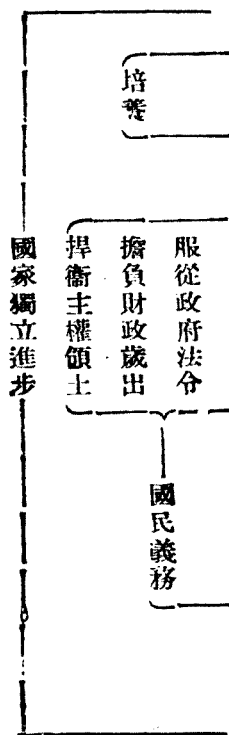 培養
服從政府法令
擔負財政歲出
捍衞主權領土
國民義務
國家獨立進步